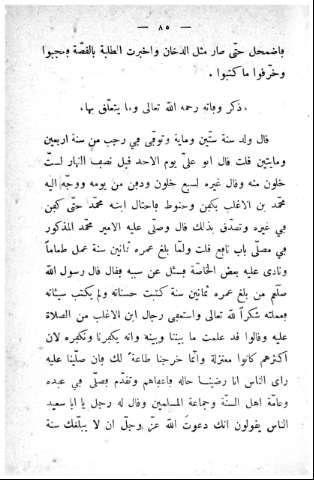 — ٨٥ —
فاضمحل حتّى صار مثل الدخان واخبرت الطلبة بالقصّة فعجبوا
وخرّفوا ما كتبوا .
ذكر وفاته رحمه الله تعالى وما يتعلّق بها.
قال ولد سنة ستّين وماية وتوفّي في رجب من سنة اربعين
ومايتين فلت قال ابو علىّ يوم الاحد قبل نصف النهار لستّ
خلون منه وقال غيره لسبع خلون ودفن من يومه ووجّه اليه
محمّد بن الاغلب بكفن وحنوط فاحتال ابنه محمّد حتّى كفن
في غيره وتصدّق بذلك قال وصلّى عليه الامير محمّد المذكور
في مصلّى باب نافع فلت ولمّا بلغ عمره ثمانين سنة عمل طعاماً
ونادى عليه بعض الخاصّة فسئل عن سببه فقال قال رسول الله
صلّعم من بلغ عمره ثمانين سنة كتبت حسناته ولم يكتب سيئاته
فعملته شكراً لله تعالى واستعفى رجال ابن الاغلب من الصلاة
عليه وقالوا قد علمت ما بيننا وبينه وانه يكفرنا ونكفره لان
اكثرهم كانوا معتزلة وانّما خرجنا طاعة لك فان صلّينا عليه
راى الناس انا رضينا حاله فاعفاهم وتقدّم فصلّى في عبده
وعامّة اهل السنّة وجماعة المسلمين وقال له رجل يا ابا سعيد
الناس يقولون انك دعوت الله عزّ وجلّ ان لا يبلّغك سنة